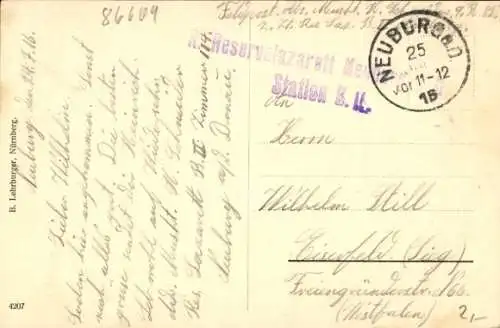 86609
Feldpost
K. Reservelazarett Neu
Station B. II.
NEUBURG a.D.
25
VOR 11-12
16
An
Herrn
Wilhelm Still
Eisenfeld (Sieg)
Freiengründerstr. 166
(Westfalen)
2,-
Neuburg den 24.7.16.
Lieber Wilhelm!
hier angekommen. Sonst
noch alles gut. Die besten
Grüsse sendet dir Heinrich.
Leb wohl auf Wiedersehn
Res. Lazarett B.II Zimmer 104
Neuburg a/d. Donau.
B. Lehrburger, Nürnberg.
4207